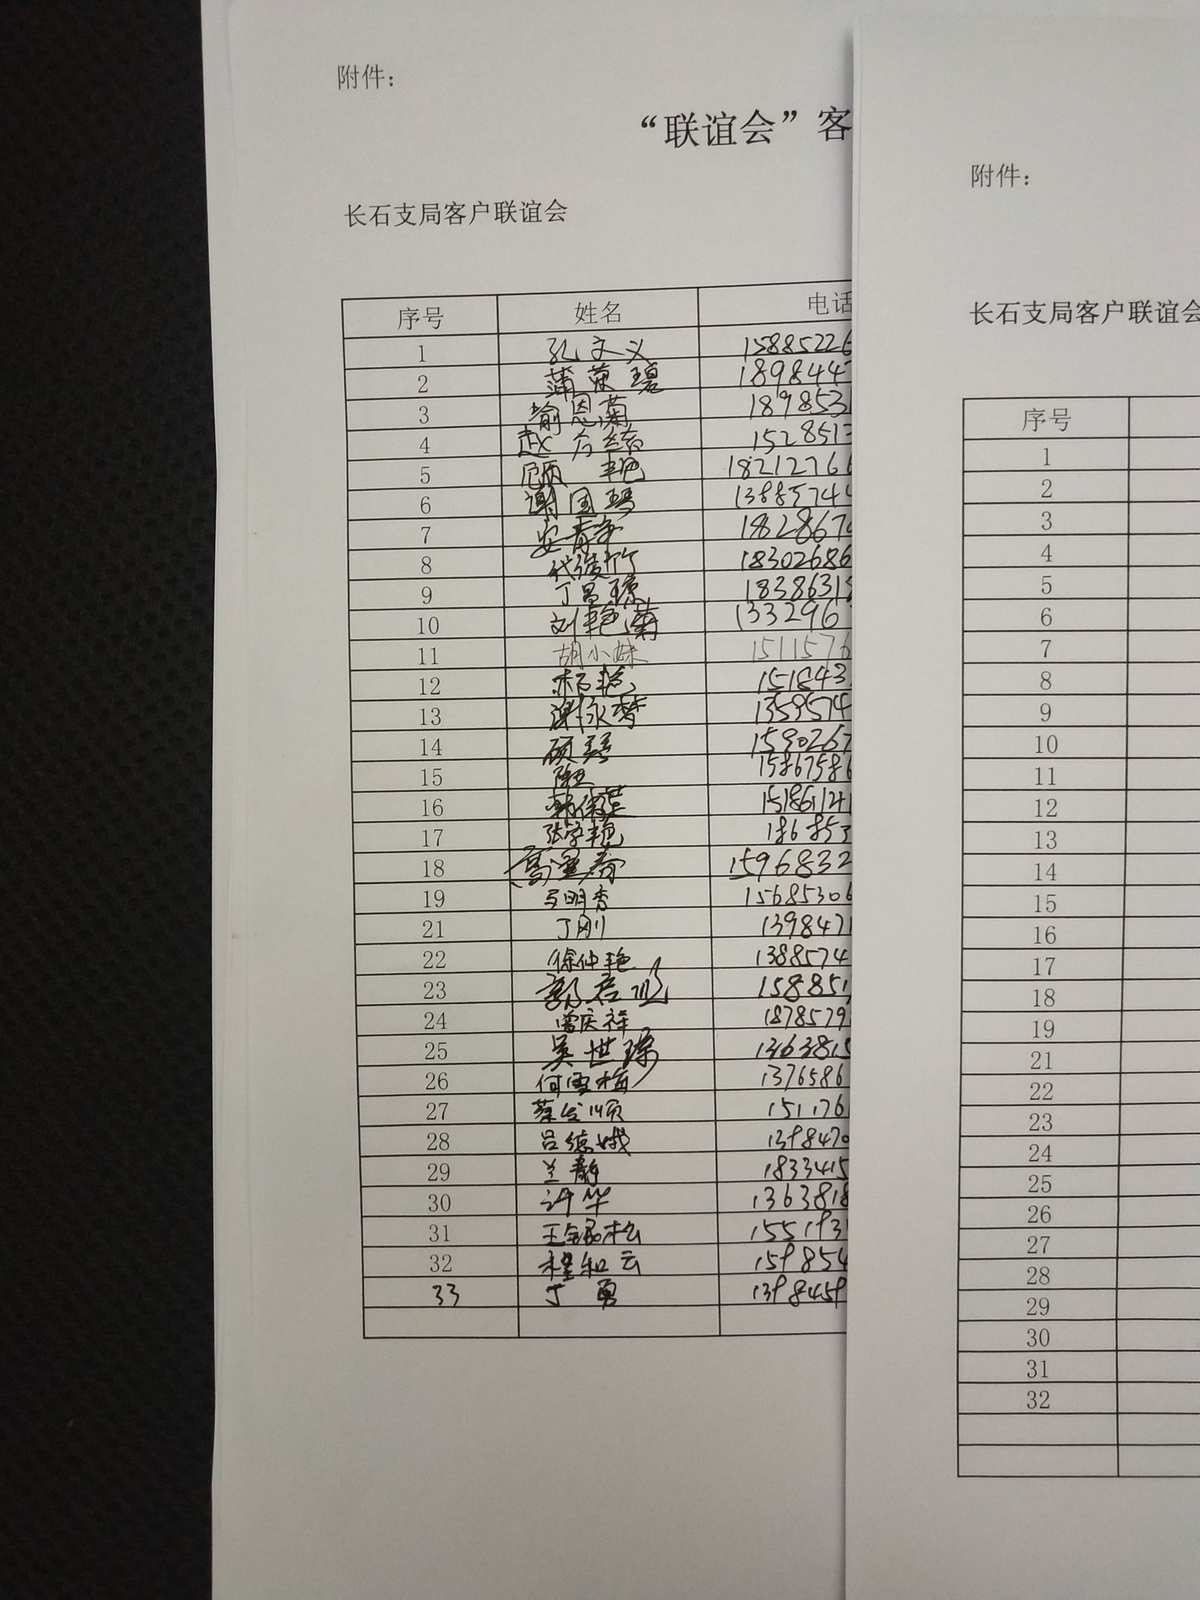 附件：
“联谊会”客
长石支局客户联谊会
序号 姓名 电话
1 孔文义 15885226
2 蒲荣碧 189844
3 喻恩蘭 189853
4 赵 152851
5 顾艳 18212766
6 谢国琴 13885744
7 安青 1828670
8 代俊竹 18302686
9 丁昌琼 18386318
10 刘艳菊 133296
11 胡小妹 1511576
12 杨艳 151843
13 谢永梦 1359574
14 顾琴 1590267
15 15867586
16 韩保英 151861141
17 张学艳 186853
18 高 1596832
19 马明秀 15685306
21 丁刚 1398471
22 徐仲艳 1388574
23 郭 158851
24 曾庆祥 1878579
25 吴世琼 1363815
26 何雪梅 1376586
27 蔡发顺 151176
28 吕德娥 1398470
29 兰静 1833415
30 许华 1363818
31 王 松 155193
32 程和云 159854
33 丁勇 1398459
附件：
长石支局客户联谊会
序号
1
2
3
4
5
6
7
8
9
10
11
12
13
14
15
16
17
18
19
21
22
23
24
25
26
27
28
29
30
31
32